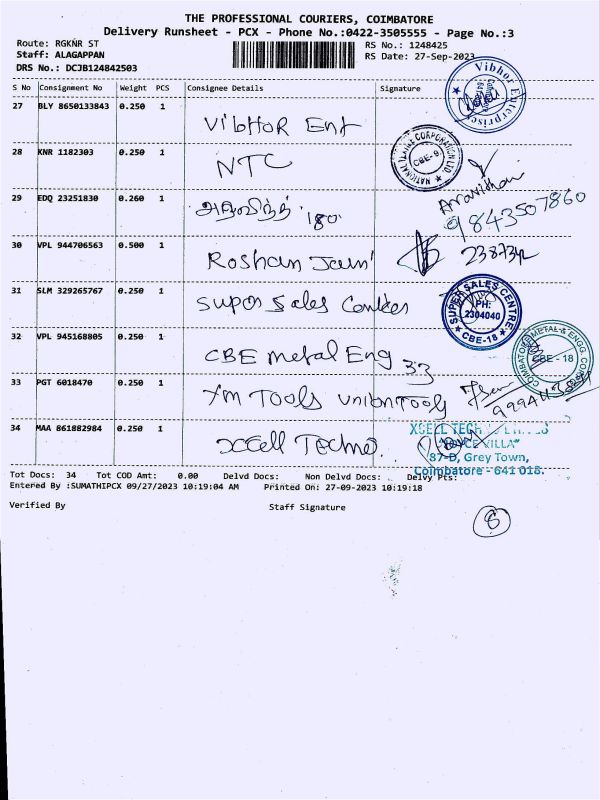 THE PROFESSIONAL COURIERS, COIMBATORE
Delivery Runsheet - PCX - Phone No.:0422-3505555 - Page No.:3
Route: RGKNR ST
RS No.: 1248425
Staff: ALAGAPPAN
RS Date: 27-Sep-2023
DRS No.: DCJB124842503
S No Consignment No Weight PCS Consignee Details Signature
27 BLY 8650133843 0.250 1 Vibhor Ent
Vibhor Enterprises
28 KNR 1182303 0.250 1 NTC
NATIONAL TEXTILE CORPORATION LTD. CBE-9
29 EDQ 23251830 0.260 1 அரவிந்த் 180
Aravinthan
9843507860
30 VPL 944706563 0.500 1 Roshan Jain
238734
31 SLM 329265767 0.250 1 Super Sales Centre
SUPER SALES CENTRE PH: 2304040 CBE-18
32 VPL 945168805 0.250 1 CBE metal Eng 33
COIMBATORE METAL & ENGG. CORPN. CBE - 18
33 PGT 6018470 0.250 1 Tools union Tools
34 MAA 861882984 0.250 1 Xcell Techno.
XCELL TECH
VILLA"
87-D, Grey Town,
Coimbatore - 641 018.
Tot Docs: 34 Tot COD Amt: 0.00 Delvd Docs: Non Delvd Docs: Delvy Pts:
Entered By :SUMATHIPCX 09/27/2023 10:19:04 AM Printed On: 27-09-2023 10:19:18
Verified By Staff Signature
8